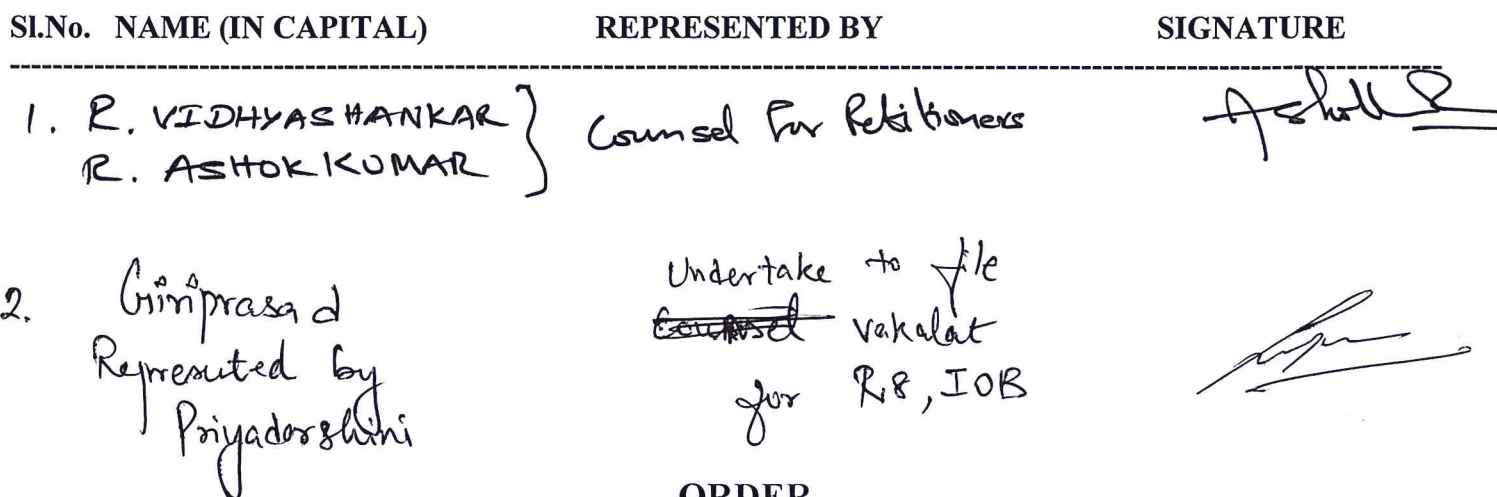 Sl.No. NAME (IN CAPITAL) REPRESENTED BY SIGNATURE
1. R. VIDHYASHANKAR } Counsel For Petitioners Ashok
R. ASHOK KUMAR
2. Giriprasad
Represented by
Priyadarshini
Undertake to file
Counsel vakalat
for R8, IOB
ORDER